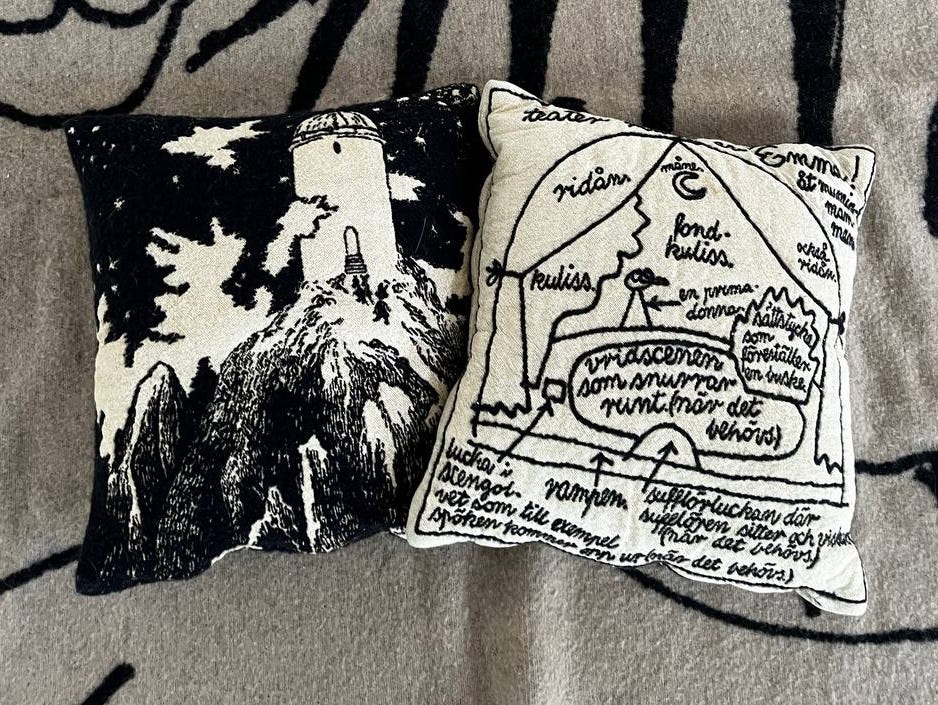 teater
Emma!
åt mumin
mam
man
ridån.
måne
fond-
kuliss.
också
ridån.
kuliss.
en prima-
donna.
sättstycke
som
föreställer
en buske.
vridscenen
som snurrar
runt.(när det
behövs)
lucka i
scengol-
vet som till exempel
spöken kommer opp ur (när det behövs.)
rampen.
sufflörluckan där
sufflören sitter och viskar
(när det behövs)